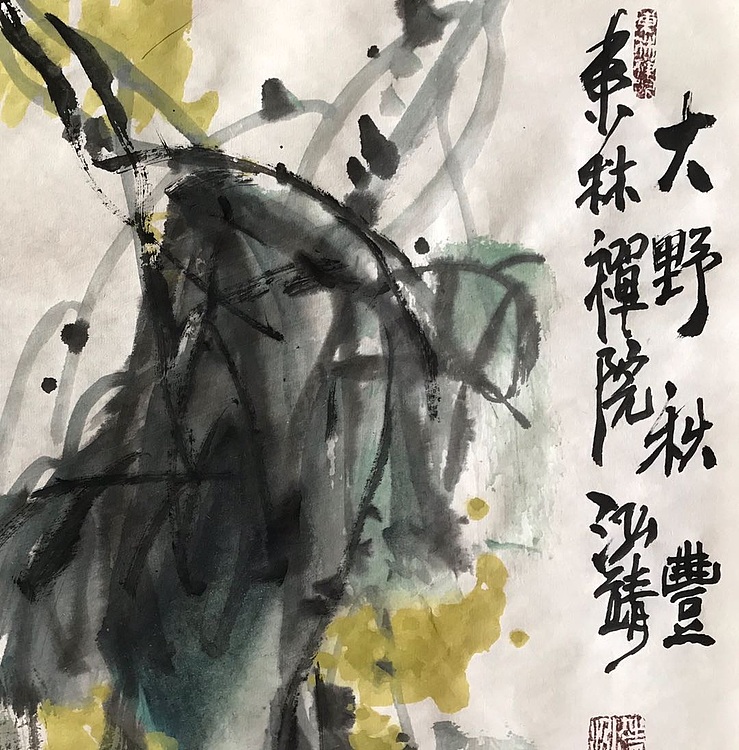 大野秋豐
東林禪院泓靖